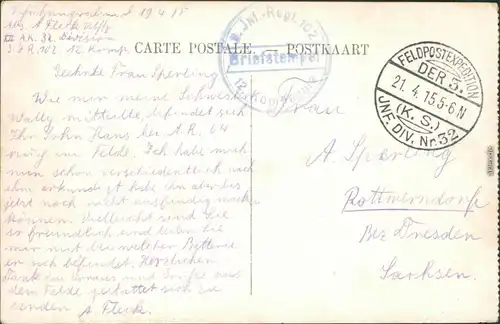 19.4.15
Abs. A. Fleck
XII. A.K. 32. Division
I.R. 102 12. Komp.
CARTE POSTALE. — POSTKARTE
Inf.-Regt. 102
Briefstempel
12. Kompagnie
FELDPOSTEXPEDITION
DER 3.
21.4.15.5-6N
(K.S.)
INF. DIV. Nr. 32
Geehrte Frau Sperling
Wie mir meine Schwester
Wally mitteilte, befindet sich
Ihr Sohn Hans bei A.R. 64
im Felde. Ich habe mich
nun schon verschiedentlich nach
ihm erkundigt habe ihn aber bis
jetzt noch nicht ausfindig machen
können. Vielleicht sind Sie
so freundlich und teilen Sie
mir mit bei welcher Batterie
er sich befindet. Herzlichen
Dank im Voraus und Grüße aus
dem Felde gestattet sich zu
senden A. Fleck.
Frau
A. Sperling
Rottwerndorf
Bez Dresden
Sachsen.